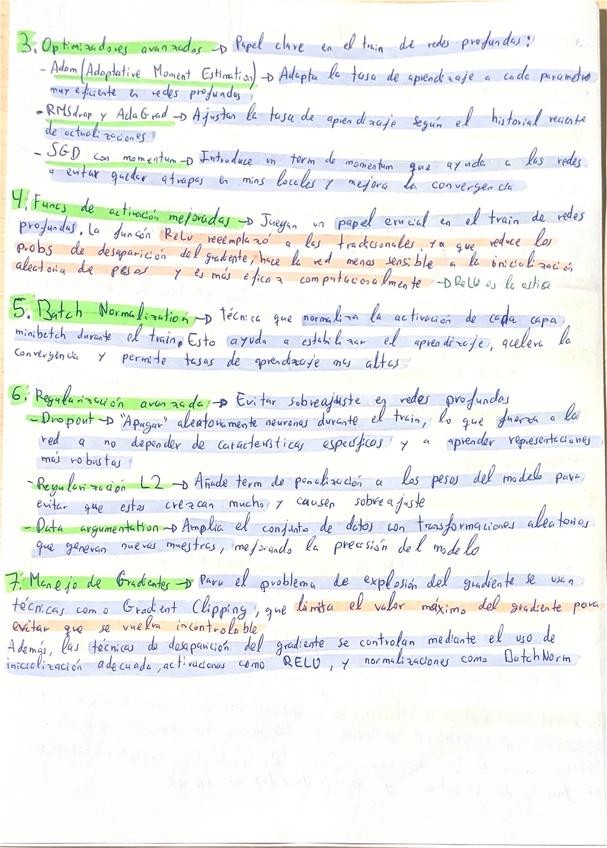 3. Optimizadores avanzados → Papel clave en el train de redes profundas:
- Adam (Adaptative Moment Estimation) → Adapta la tasa de aprendizaje a cada parametro
muy eficiente en redes profundas
- RMSdrop y AdaGrad → Ajustan la tasa de aprendizaje según el historial reciente
de actualizaciones
- SGD con momentum → Introduce un term de momentum que ayuda a las redes
a evitar quedar atrapas en mins locales y mejora la convergencia
4. Funcs de activación mejoradas → Juegan un papel crucial en el train de redes
profundas. La función ReLu reemplazó a las tradicionales, ya que reduce los
probs de desaparición del gradiente, hace la red menos sensible a la inicialización
aleatoria de pesos y es más eficaz computacionalmente → ReLU es la ostia
5. Batch Normalization → técnica que normaliza la activación de cada capa
minibatch durante el train. Esto ayuda a estabilizar el aprendizaje, acelera la
convergencia y permite tasas de aprendizaje mas altas
6. Regularización avanzada → Evitar sobreajuste en redes profundas
- Dropout → "Apagar" aleatoriamente neuronas durante el train, lo que fuerza a la
red a no depender de características específicos y a aprender representaciones
más robustas
- Regularización L2 → Añade term de penalización a los pesos del modelo para
evitar que estos crezcan mucho y causen sobreajuste
- Data argumentation → Amplia el conjunto de datos con transformaciones aleatorias
que generan nuevas muestras, mejorando la precisión del modelo
7. Manejo de Gradientes → Para el problema de explosión del gradiente se usan
técnicas como Gradient Clipping, que limita el valor máximo del gradiente para
evitar que se vuelva incontrolable
Además, las técnicas de desaparición del gradiente se controlan mediante el uso de
inicialización adecuada, activaciones como RELU, y normalizaciones como BatchNorm